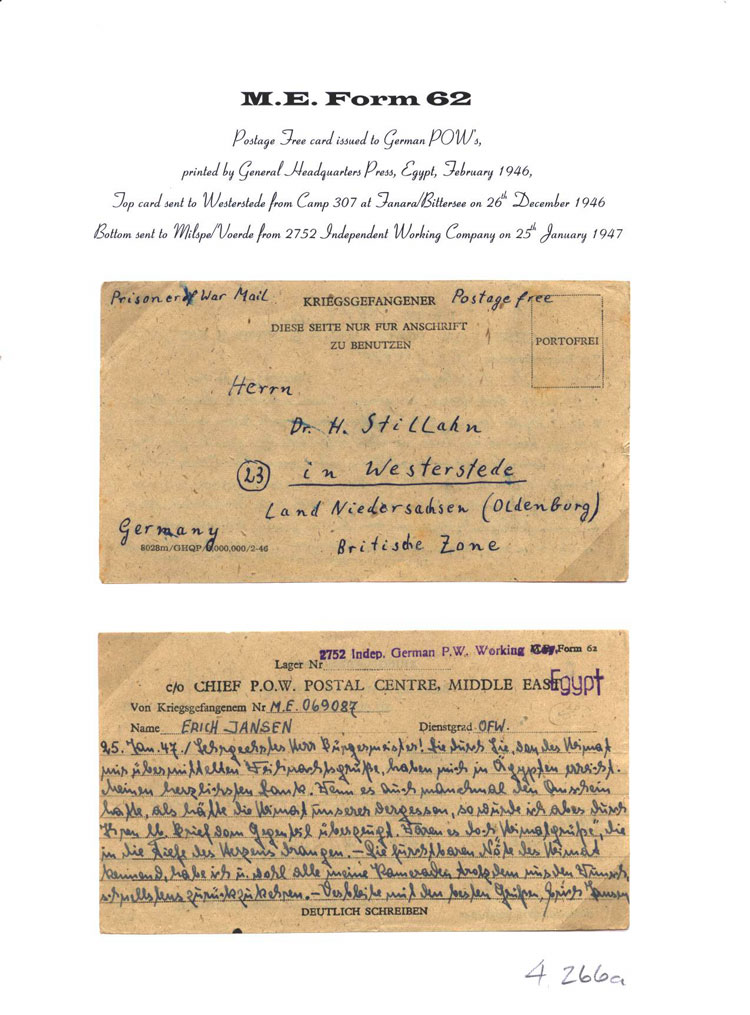 M.E. Form 62
Postage Free card issued to German POW's,
printed by General Headquarters Press, Egypt, February 1946,
Top card sent to Westerstede from Camp 307 at Fanara/Bittersee on 26th December 1946
Bottom sent to Milspe/Voerde from 2752 Independent Working Company on 25th January 1947
Prisoner of War Mail KRIEGSGEFANGENER Postage free
DIESE SEITE NUR FUR ANSCHRIFT
ZU BENUTZEN
PORTOFREI
Herrn
Dr. H. Stillahn
(23) in Westerstede
Land Niedersachsen (Oldenburg)
Germany
8028m/GHQP/ ,000,000/2-46
Britische Zone
2752 Indep. German P.W. Working Coy. M.E. Form 62
Lager Nr
c/o CHIEF P.O.W. POSTAL CENTRE, MIDDLE EAST Egypt
Von Kriegsgefangenem Nr M.E. 069087
Name ERICH JANSEN Dienstgrad OFW.
25. Jan. 47. / Sehrgeehrter Herr Bürgermeister! Die durch Sie, von der Heimat
mir übermittelten Weihnachtsgrüße, haben mich in Ägypten erreicht.
Meinen herzlichsten Dank. Wenn es auch manchmal den Anschein
hatte, als hätte die Heimat unserer vergessen, so wurde ich aber durch
Ihren lb. Brief vom Gegenteil überzeugt. Waren es doch "Heimatgrüße", die
in die Tiefe des Herzens drangen. – Die furchtbaren Nöte der Heimat
kennend, habe ich u. wohl alle meine Kameraden trotzdem nur den Wunsch
schnellstens zurückzukehren. – Verbleibe mit den besten Grüßen, Erich Jansen
DEUTLICH SCHREIBEN
4 266a